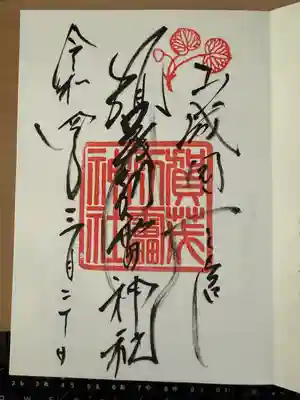 山城国一之宮
賀茂別雷神社
令和四年三月二十日
賀茂
別雷
神社